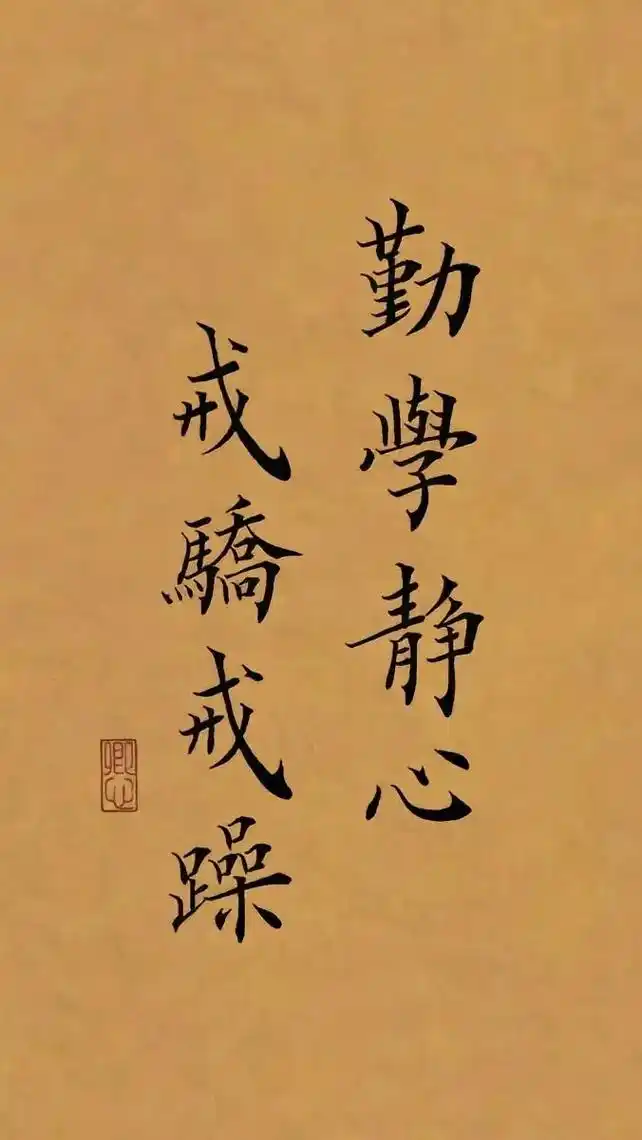 勤學静心
戒驕戒躁